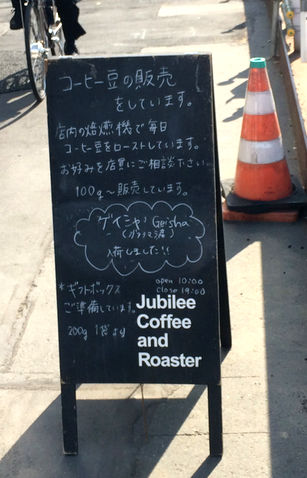 コーヒー豆の販売
をしています。
店内の焙煎機で毎日
コーヒー豆をローストしています。
お好みを店員にご相談ください。
100g〜販売しています。
ゲイシャ Geisha
(パナマ産)
入荷しました!!
*ギフトボックス
ご準備しています。
200g 1袋より
open 10:00
close 19:00
Jubilee
Coffee
and
Roaster